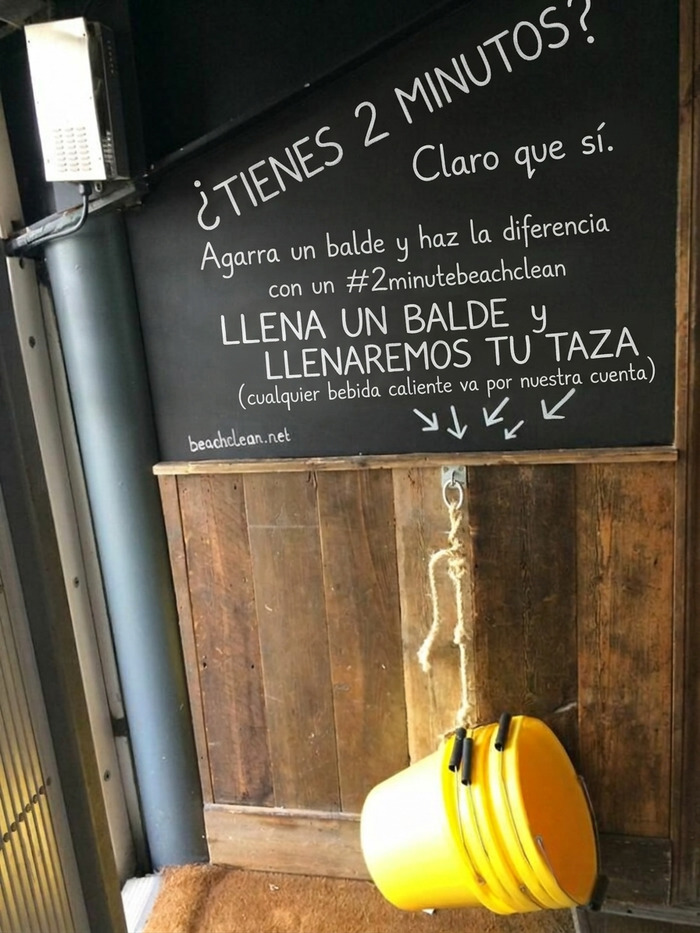 ¿TIENES 2 MINUTOS?
Claro que sí.
Agarra un balde y haz la diferencia
con un #2minutebeachclean
LLENA UN BALDE y
LLENAREMOS TU TAZA
(cualquier bebida caliente va por nuestra cuenta)
beachclean.net